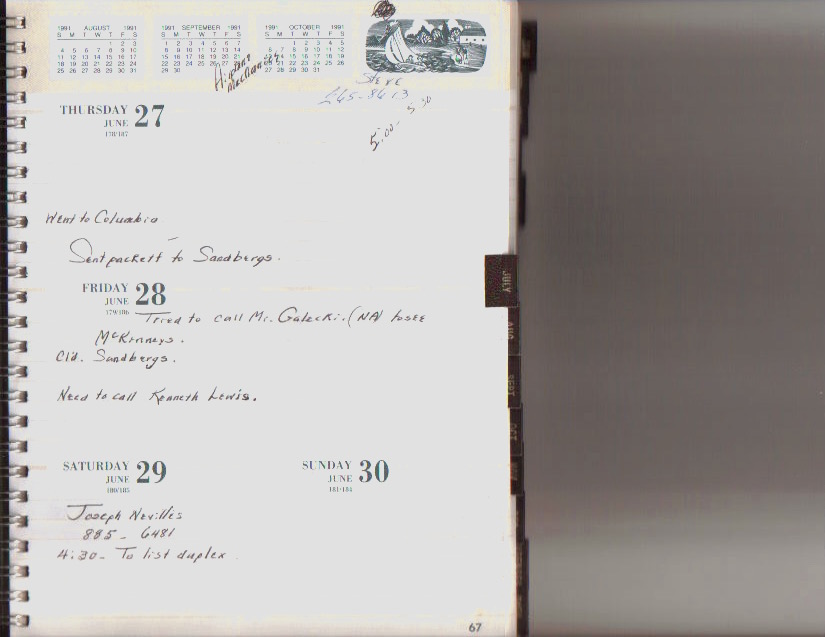 1991 AUGUST 1991
S M T W T F S
1 2 3
4 5 6 7 8 9 10
11 12 13 14 15 16 17
18 19 20 21 22 23 24
25 26 27 28 29 30 31
1991 SEPTEMBER 1991
S M T W T F S
1 2 3 4 5 6 7
8 9 10 11 12 13 14
15 16 17 18 19 20 21
22 23 24 25 26 27 28
29 30
1991 OCTOBER 1991
S M T W T F S
1 2 3 4 5
6 7 8 9 10 11 12
13 14 15 16 17 18 19
20 21 22 23 24 25 26
27 28 29 30 31
STEVE
5:00 - 5:30
THURSDAY 27
JUNE
178/187
Went to Columbia
Sent packett to Sandbergs.
FRIDAY 28
JUNE
179/186
Tried to call Mr. Galecki. (NA) to see
McKinneys.
Cld. Sandbergs.
Need to call Kenneth Lewis.
SATURDAY 29
JUNE
180/185
SUNDAY 30
JUNE
181/184
Joseph Nevilles
885-6481
4:30 - To list duplex
67
JULY
AUG
SEPT
OCT